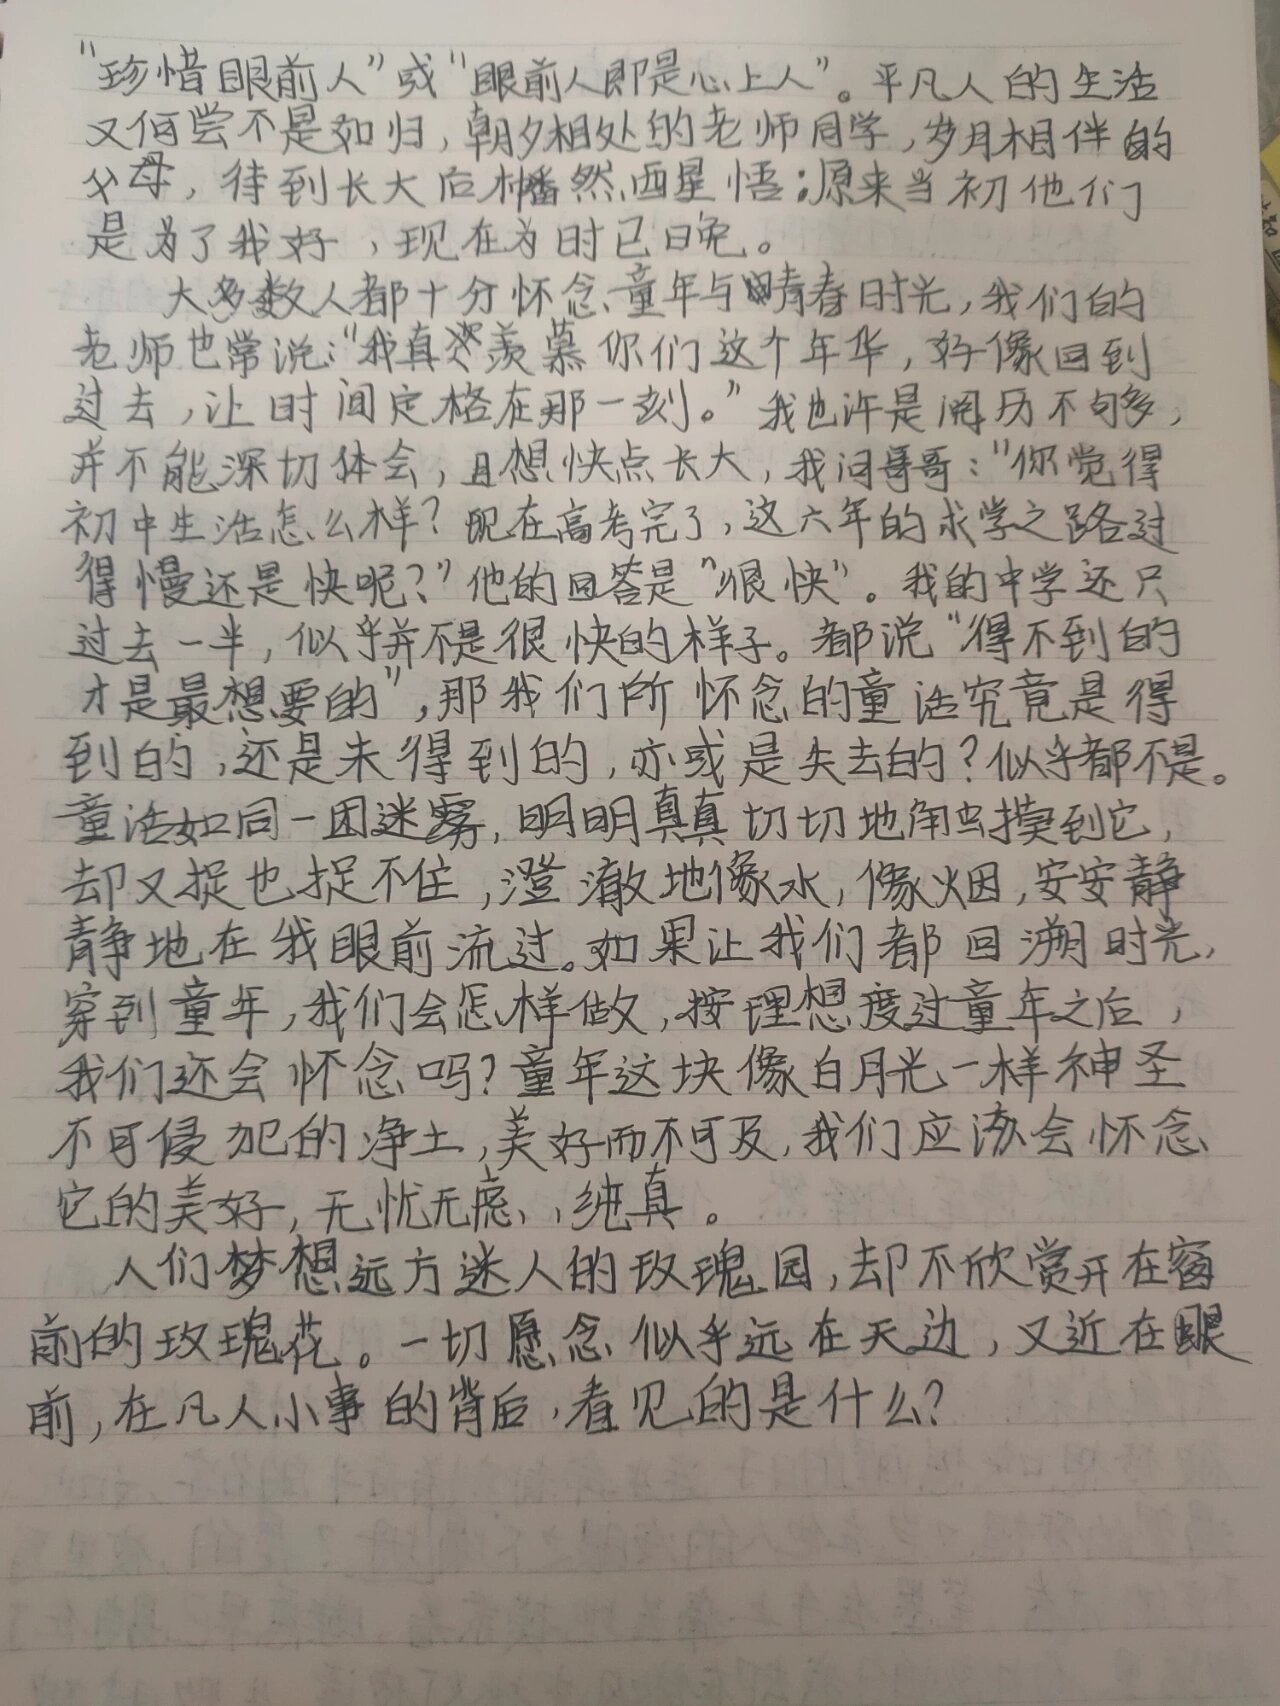 "珍惜眼前人"或"眼前人即是心上人"。平凡人的生活
又何尝不是如归，朝夕相处的老师同学，岁月相伴的
父母，待到长大后幡然醒悟：原来当初他们
是为了我好，现在为时已晚。
大多数人都十分怀念童年与青春时光，我们的
老师也常说："我真羡慕你们这个年华，好像回到
过去，让时间定格在那一刻。"我也许是阅历不够多，
并不能深切体会，且想快点长大，我问哥哥："你觉得
初中生活怎么样？现在高考完了，这六年的求学之路过
得慢还是快呢？"他的回答是"很快"。我的中学还只
过去一半，似乎并不是很快的样子。都说"得不到的
才是最想要的"，那我们所怀念的童话究竟是得
到的，还是未得到的，亦或是失去的？似乎都不是。
童话如同一团迷雾，明明真真切切地触摸到它，
却又捉也捉不住，澄澈地像水，像烟，安安静
静地在我眼前流过。如果让我们都回溯时光，
穿到童年，我们会怎样做，按理想度过童年之后，
我们还会怀念吗？童年这块像白月光一样神圣
不可侵犯的净土，美好而不可及，我们应该会怀念
它的美好，无忧无虑，纯真。
人们梦想远方迷人的玫瑰园，却不欣赏开在窗
前的玫瑰花。一切愿念似乎远在天边，又近在眼
前，在凡人小事的背后，看见的是什么？